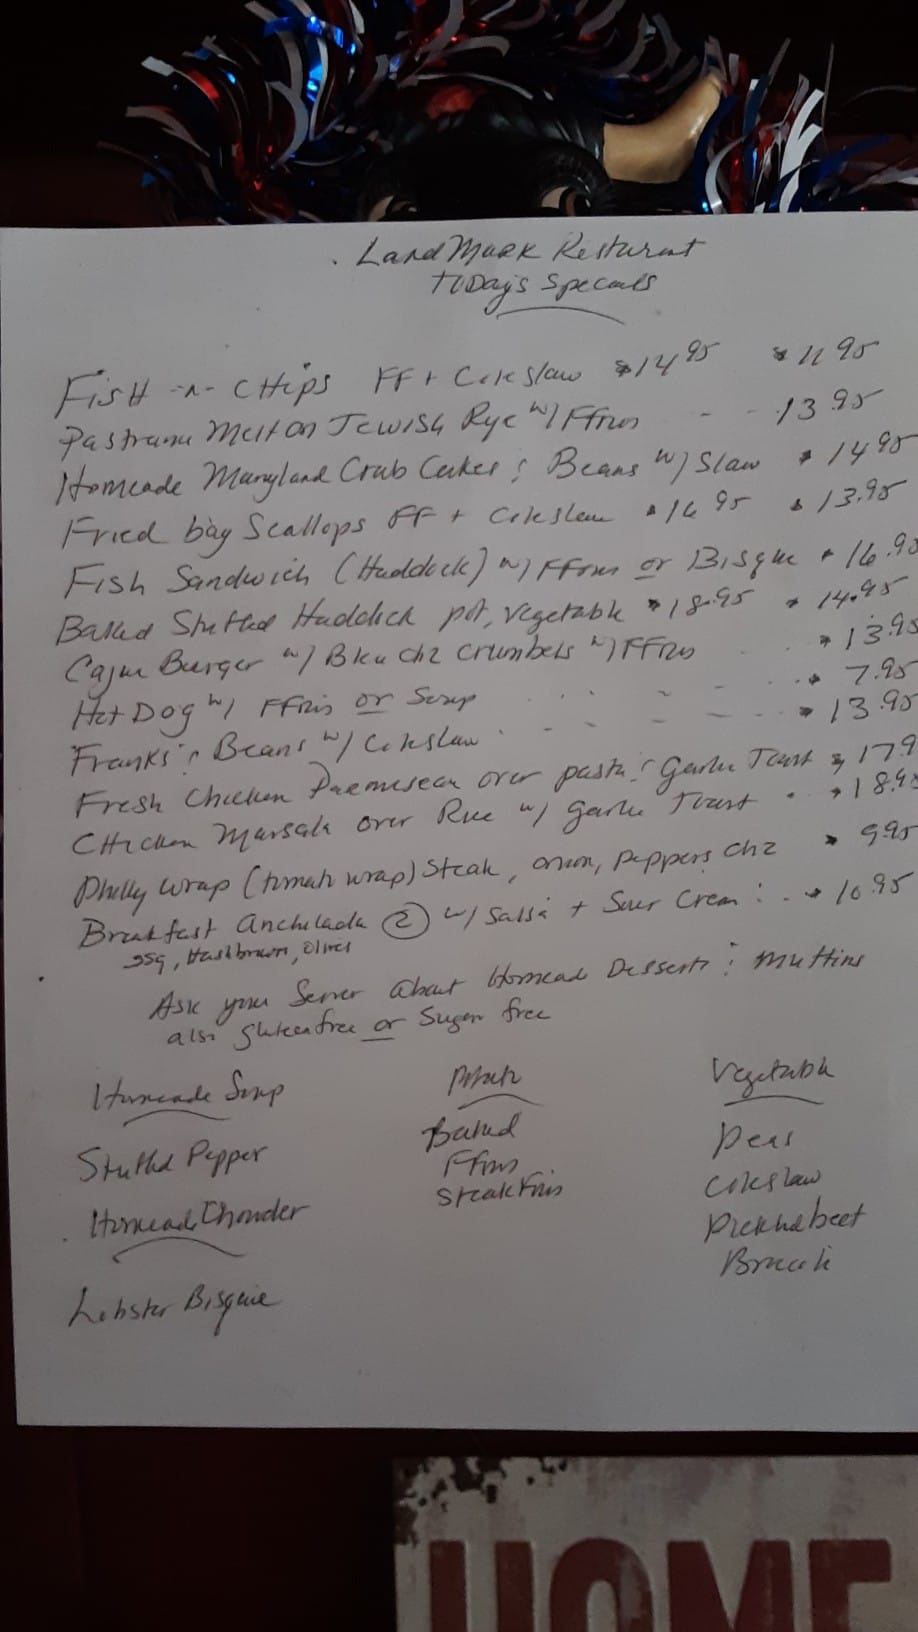 LandMark Resturant
TODay's Specials
Fish -n- CHips FF + Coleslaw $14 95 $11 95
Pastrami Melt on Jewish Rye w/ FFries - - 13.95
Homeade Maryland Crab Cakes & Beans w/ Slaw $14 95
Fried bay Scallops FF + Coleslaw $16 95 $13.95
Fish Sandwich (Haddock) w/ FFries or Bisque $16.95
Baked Stuffed Haddock pot, vegetable $18.95 $14.95
Cajun Burger w/ Bleu chz crumbels w/ FFries $13.95
Hot Dog w/ FFries or Soup 7.95
Franks & Beans w/ Coleslaw 13.95
Fresh Chicken Parmesean over pasta & Garlic Toast $179
CHicken Marsala over Rice w/ garlic Toast 18.95
Philly wrap (tomato wrap) Steak, onion, peppers chz 9.95
Breakfast anchilada 2 w/ Salsa + Sour Cream 10.95
ssg, Hashbrown, olives
Ask your Server about Homead Desserts & muffins
also glutenfree or Sugar free
Homeade Soup Potato Vegetable
Stuffed Pepper Baked Peas
FFries Coleslaw
Steak Fries
Homeade Chowder Pickled beet
Brocoli
Lobster Bisque
HOME